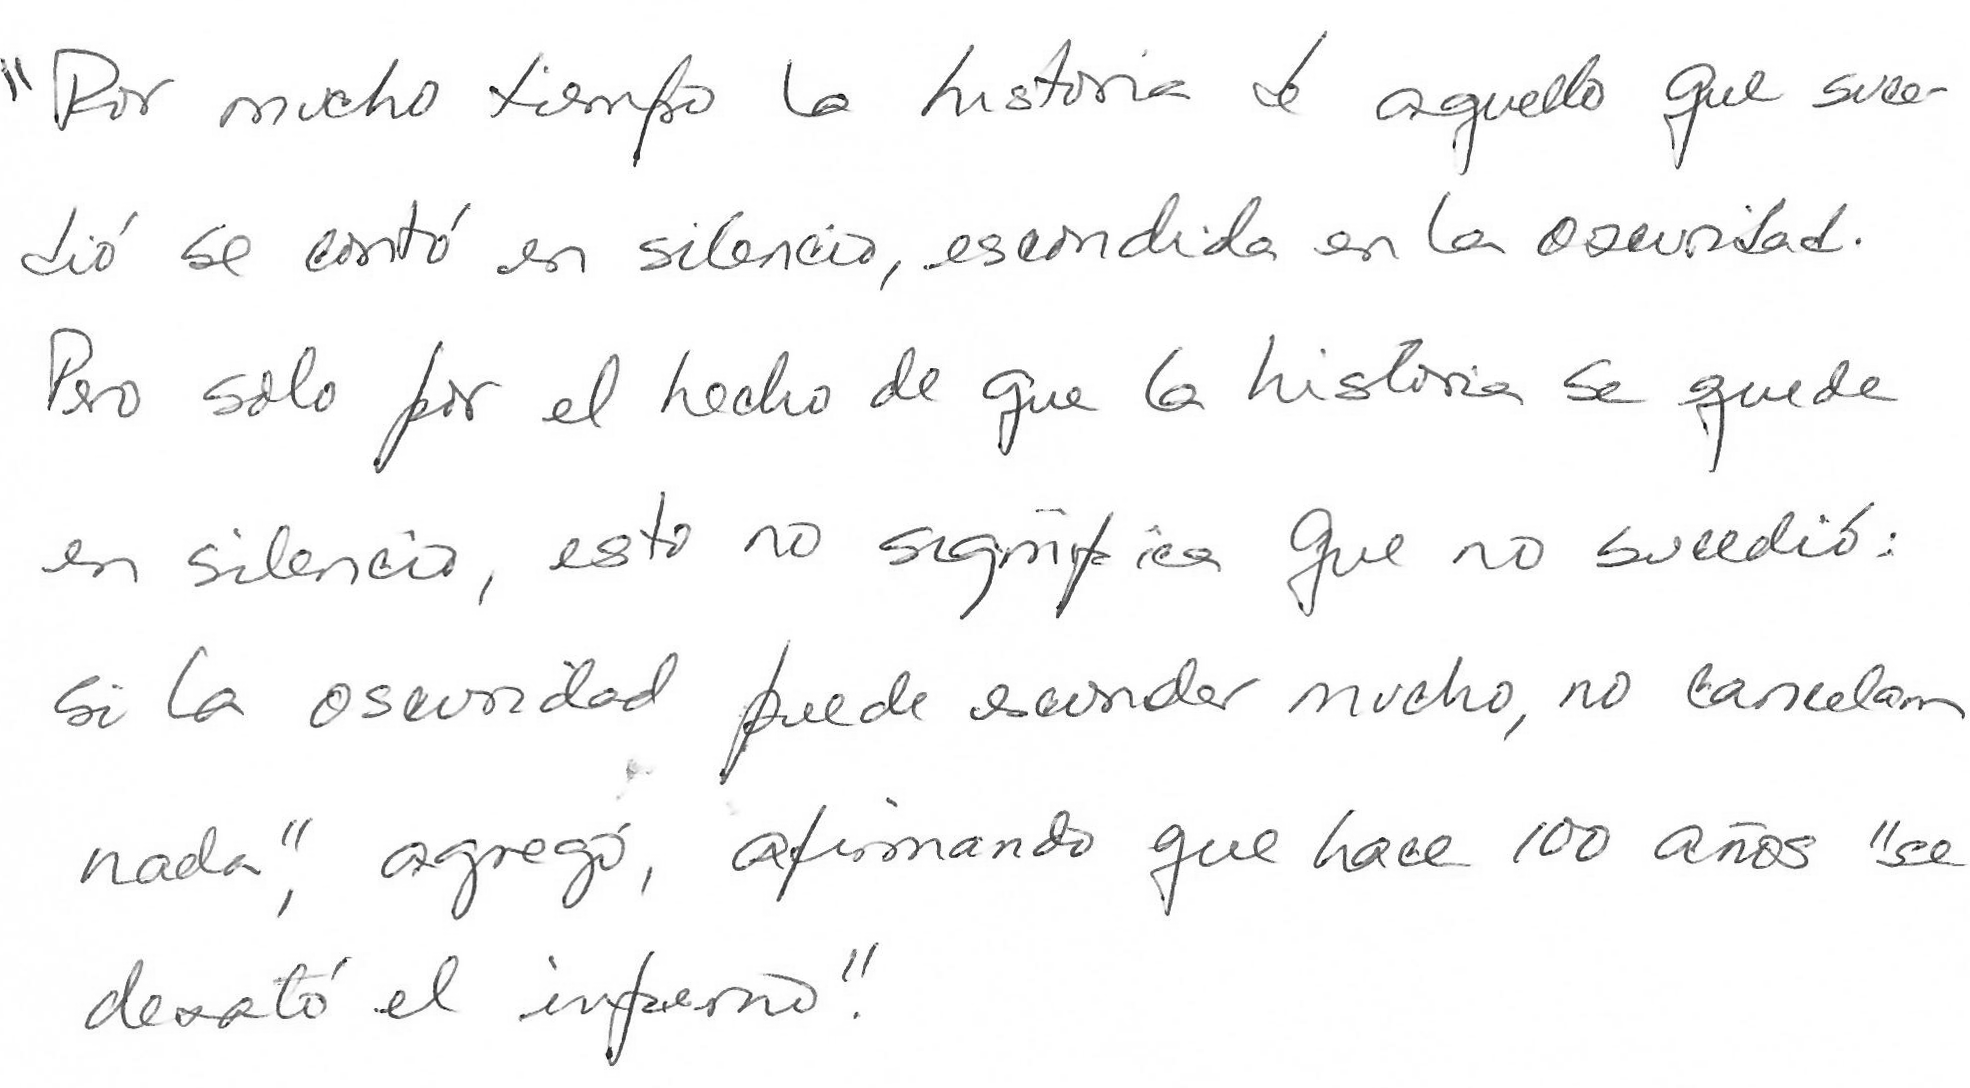 "Por mucho tiempo la historia de aquello que suce-
dió se contó en silencio, escondida en la oscuridad.
Pero solo por el hecho de que la historia se quede
en silencio, esto no significa que no sucedió:
si la oscuridad puede esconder mucho, no cancelan
nada", agregó, afirmando que hace 100 años "se
desató el infierno".